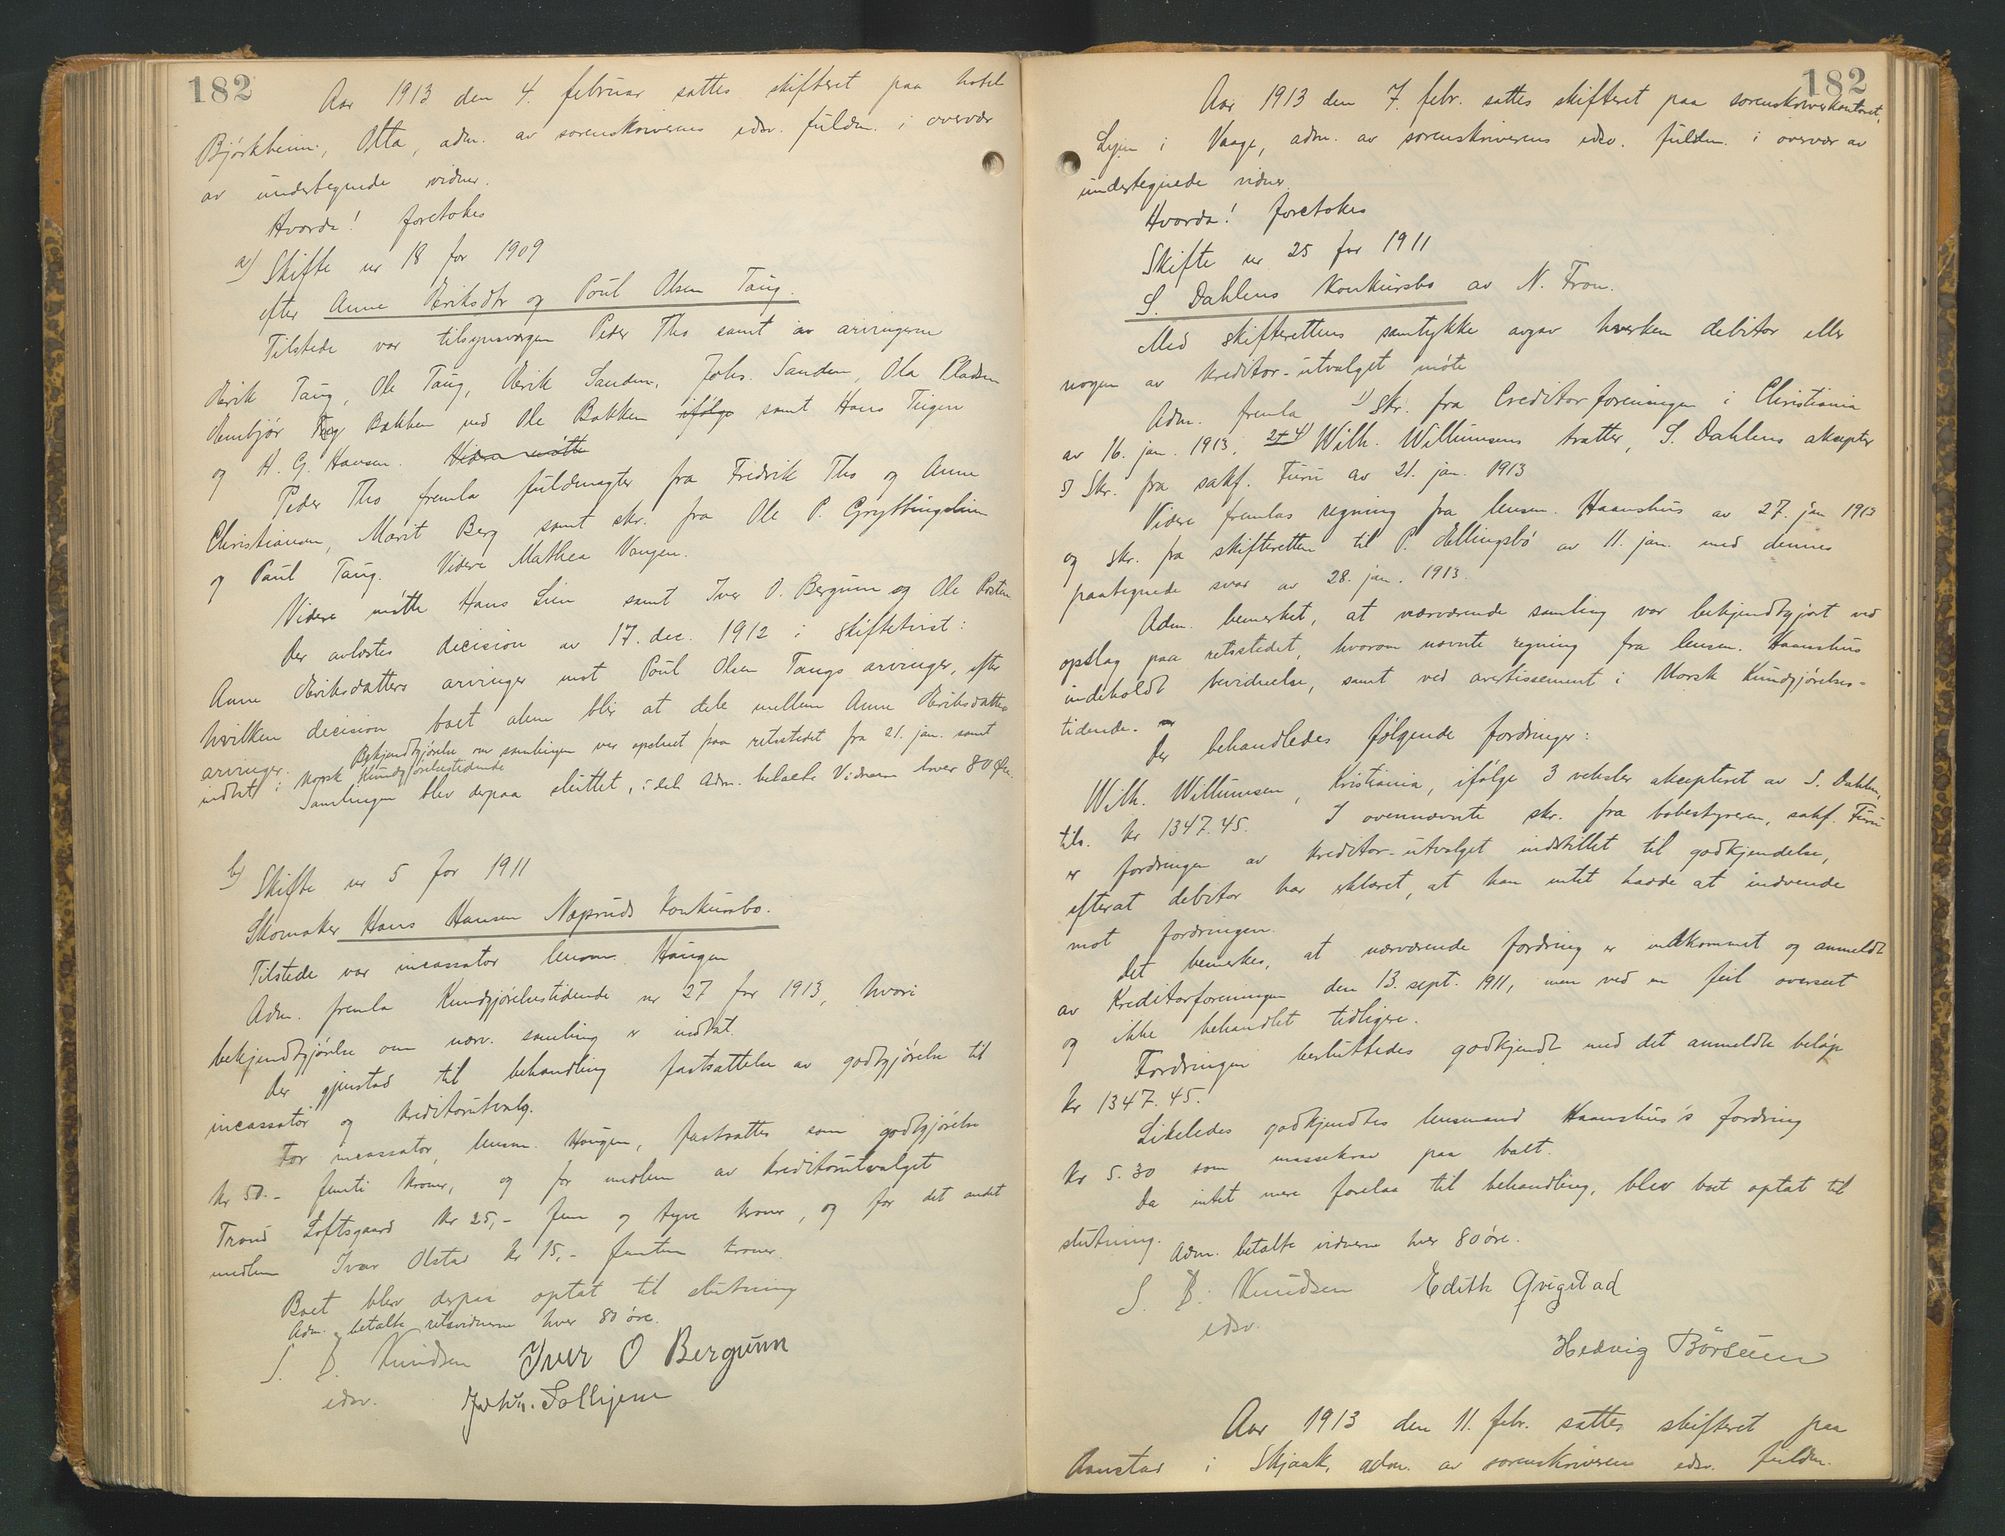 182
Aar 1913 den 4. februar sattes skifteret paa hotel
Bjørkheim, Otta, adm. av sorenskriverens edsv. fuldm. i overvær
av undertegnede vidner.
Hvorda! foretokes
a) Skifte nr 18 for 1909
efter Anne Eriksdtr og Poul Olsen Taug.
Tilstede var tilsynsvergen Peder Tho samt av arvingerne
Erik Taug, Ole Taug, Erik Sanden, Johs. Sanden, Ola Pladsen
Embjør Bakken ved Ole Bakken ifølge samt Hans Teigen
og H. G. Hansen. Videre møtte
Peder Tho fremla fuldmagter fra Fredrik Tho og Anne
Christiansen, Marit Berg samt skr. fra Ole P. Gryttingslien
og Paul Taug. Videre Mathea Vangen.
Videre møtte Hans Lien samt Iver O. Bergum og Ole Prsten
Der avlæstes decision av 17. dec. 1912 i skiftetvist:
Anne Eriksdatters arvinger mot Poul Olsen Taugs arvinger, efter
hvilken decision boet alene blir at dele mellem Anne Eriksdatters
arvinger. Bekjendtgjørelse om samlingen var opslaaet paa retsstedet fra 21. jan. samt
indtat i Norsk Kundgjørelsestidende
Samlingen blev derpaa sluttet, idet Adm. betalte Vidnerne hver 80 Øre.
b) Skifte nr 5 for 1911
Skomaker Hans Hansen Næpruds Konkursbo.
Tilstede var incassator lensm. Haugen
Adm. fremla Kundgjørelsestidende nr 27 for 1913, hvori
bekjendtgjørelse om nærv. samling er indtat.
Der gjenstod til behandling fastsættelse av godtgjørelse til
incassator og kreditorutvalg.
For incassator, lensm. Haugen, fastsattes som godtgjørelse
kr 50.- femti kroner, og for medlem av kreditorutvalget
Trond Loftsgaard kr 25,- fem og tyve kroner, og for det andet
medlem Ivar Olstad kr 15,- femten kroner.
Boet blev derpaa optat til slutning
Adm. betalte retsvidnerne hver 80 øre.
S. B. Knudsen Iver O Bergum
edsv. Solhjem
182
Aar 1913 den 7. febr. sattes skifteret paa sorenskriverkontoret,
i Vaage, adm. av sorenskriverens edsv. fuldm. i overvær av
undertegnede vidner.
Hvorda! foretokes
Skifte nr 25 for 1911
S. Dahlens Konkursbo av N. Fron.
Med skifterettens samtykke avgav hverken debitor eller
nogen av kreditor-utvalget møte
Adm. fremla 1) Skr. fra Creditorforeningen i Christiania
av 16. jan. 1913, 2-4) Wilh. Willumsens tratter, S. Dahlens aksepter
5) Skr. fra sakf. Furu av 21. jan. 1913
Videre fremlas regning fra lensm. Haanshus av 27. jan 1913
og skr. fra skifteretten til P. Ellingsbø av 11. jan. med dennes
paategnede svar av 28. jan. 1913.
Adm. bemerket, at nærværende samling var bekjendtgjort ved
opslag paa retsstedet, hvorom nævnte regning fra lensm. Haanshus
indeholdt bevidnelse, samt ved avertissement i Norsk Kundgjørelses-
tidende.
Der behandledes følgende fordringer:
Wilh. Willumsen, Kristiania, ifølge 3 veksler aksepteret av S. Dahlen,
tils. kr 1347.45. I ovennævnte skr. fra bobestyreren, sakf. Furu
er fordringen av kreditor-utvalget indstillet til godkjendelse,
efterat debitor har erklæret, at han intet hadde at indvende
mot fordringen.
Det bemerkes, at nærværende fordring er indkommet og anmeldt
av Kreditorforeningen den 13. sept. 1911, men ved en feil overseet
og ikke behandlet tidligere.
Fordringen besluttedes godkjendt med det anmeldte beløp
kr 1347.45.
Likeledes godkjendtes lensmand Haanshus's fordring
kr 5.30 som massekrav paa boet.
Da intet mere forelaa til behandling, blev boet optat til
slutning.
Adm. betalte vidnerne hver 80 øre.
S. B. Knudsen Edith Qvigstad
edsv.
Hedvig Børseum
Aar 1913 den 11. febr. sattes skifteret paa
Aanstad i Skjaak, adm. av sorenskriverens edsv. fuldm.